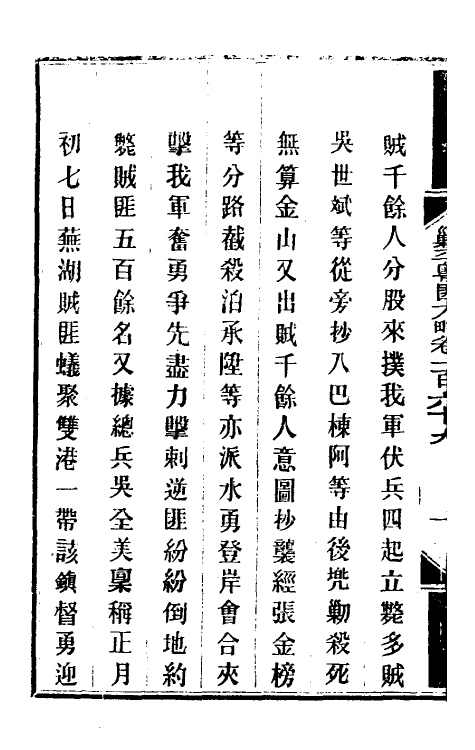 賊千餘人分股來撲我軍伏兵四起立斃多賊
吳世斌等從旁抄入巴棟阿等由後兠勦殺死
無算金山又出賊千餘人意圖抄襲經張金榜
等分路截殺泊承陞等亦派水勇登岸會合夾
擊我軍奮勇爭先盡力擊剌逆匪紛紛倒地約
斃賊匪五百餘名又據總兵吳全美稟稱正月
初七日蕪湖賊匪蟻聚雙港一帶該鎮督勇迎